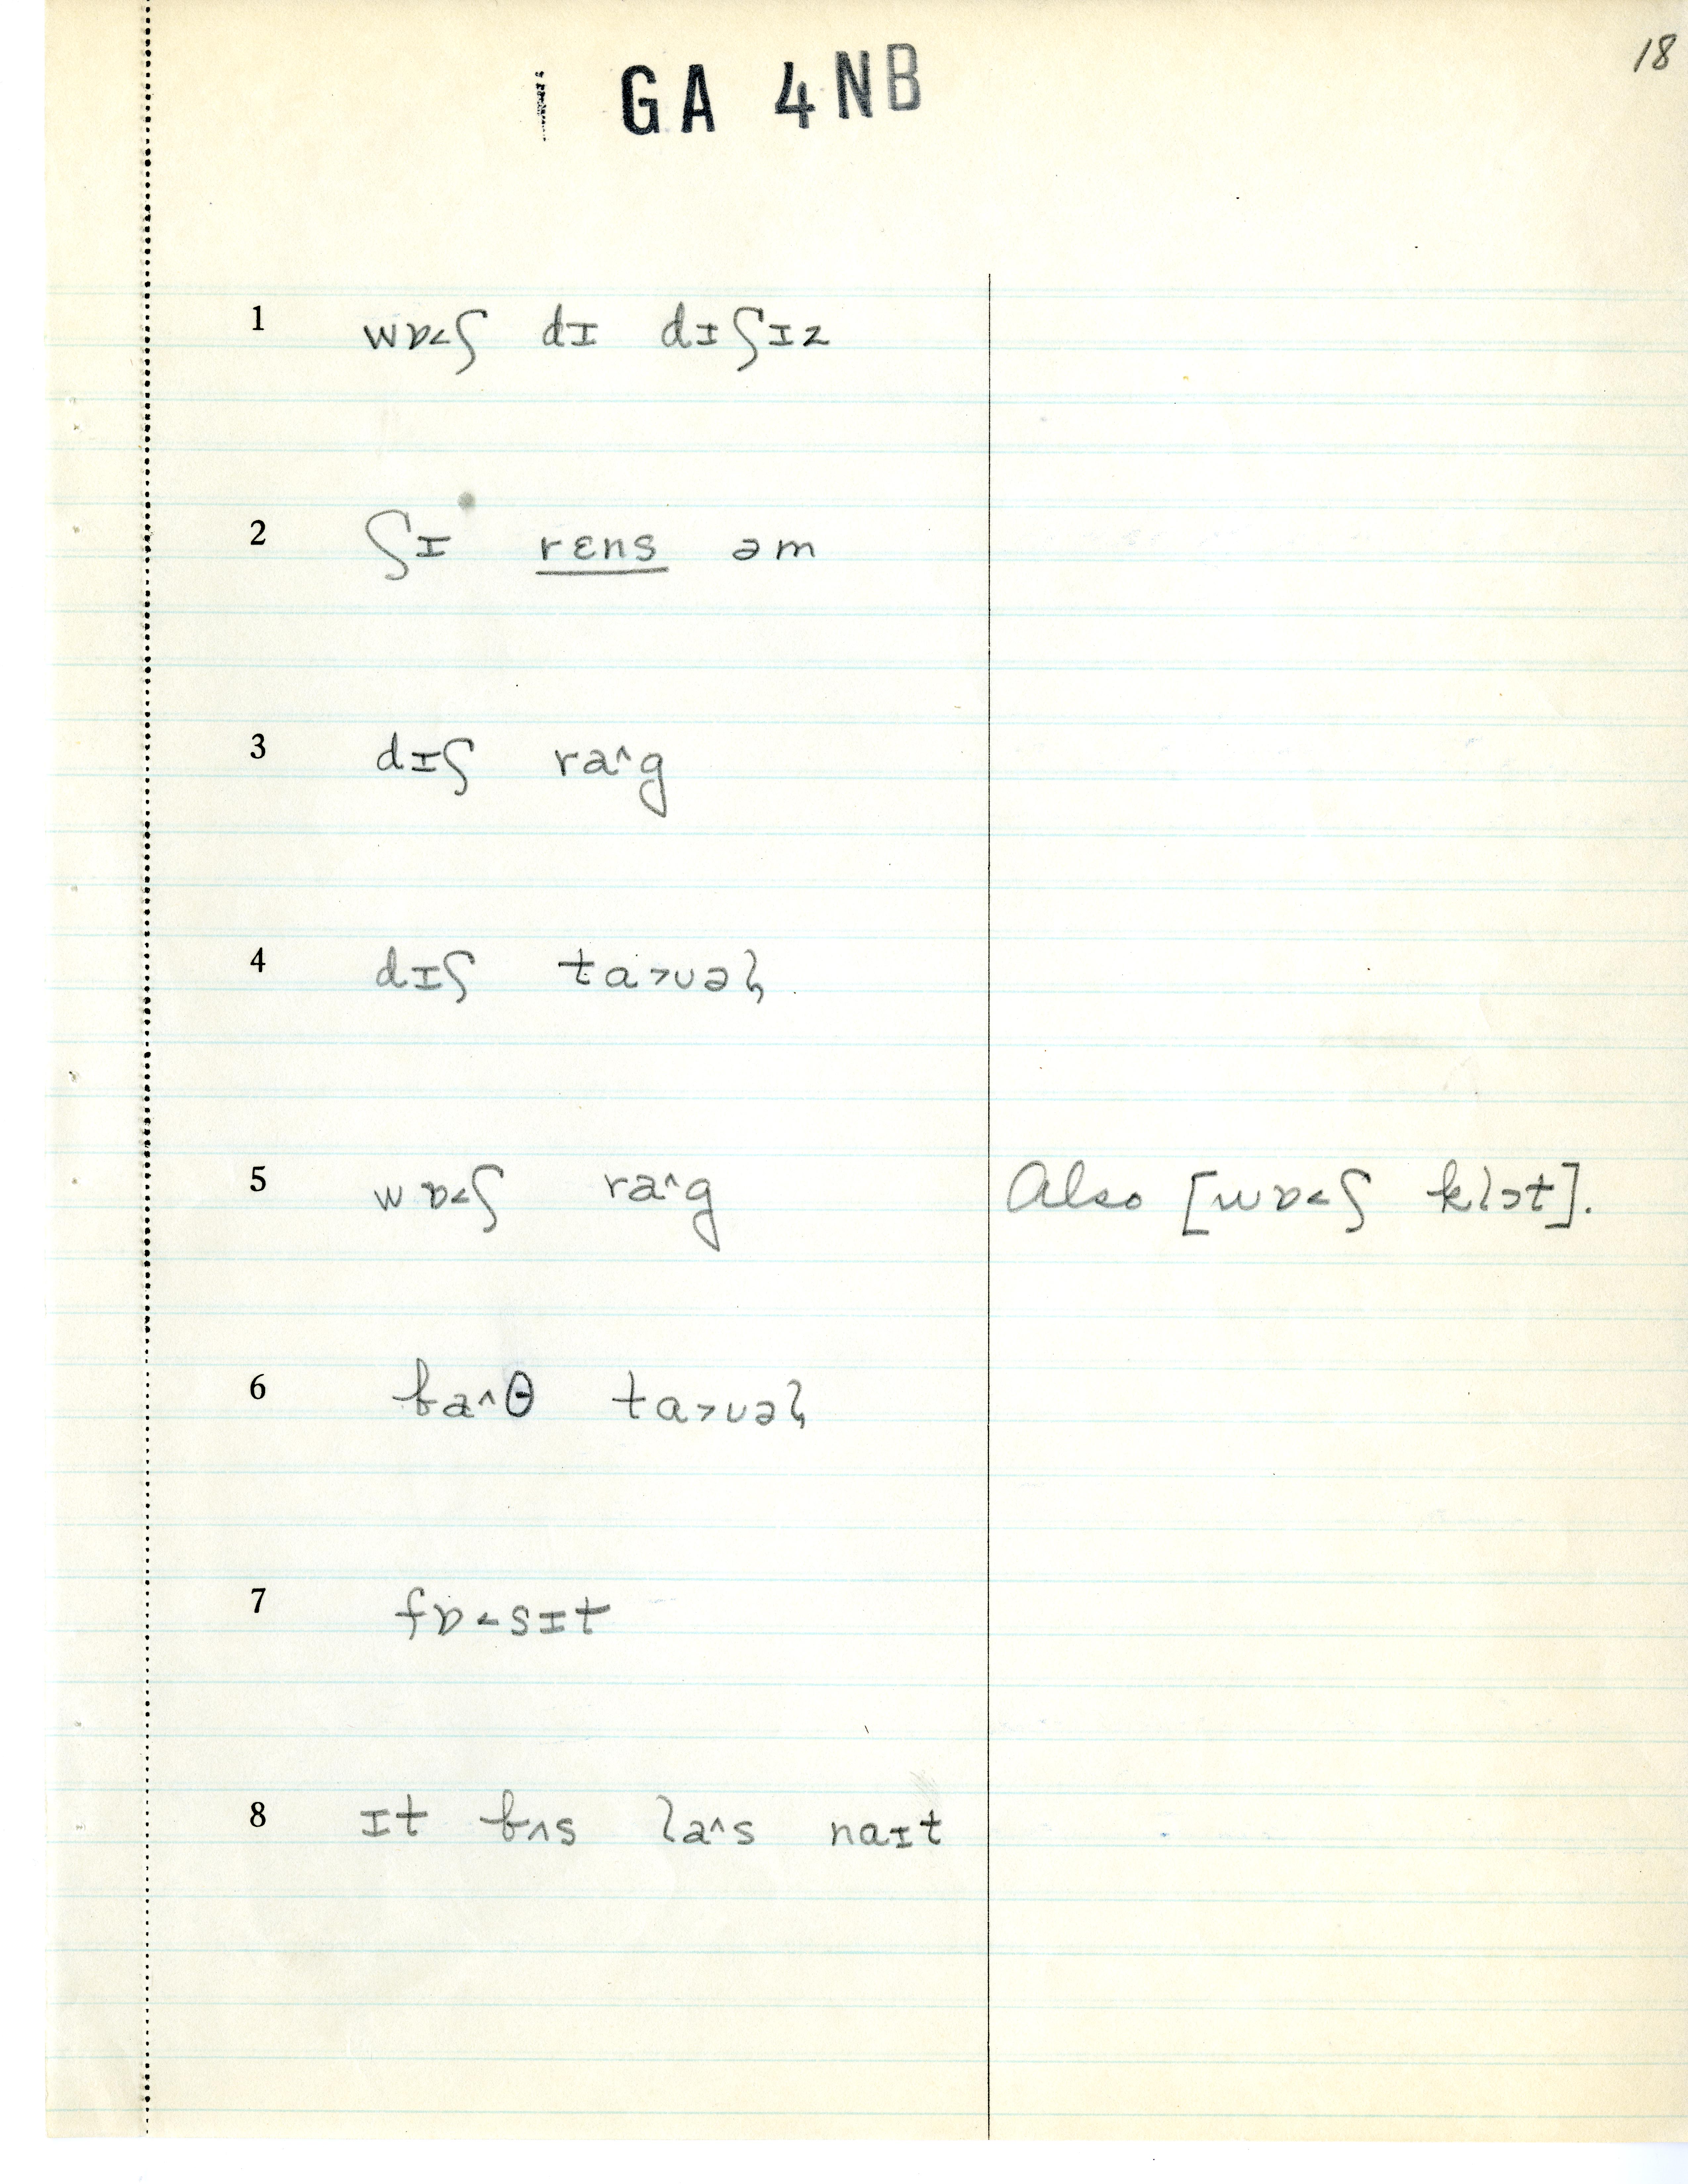 18
GA 4NB
1 wɒ<ʃ dɪ dɪʃɪz
2 ʃɪ rɛns əm
3 dɪʃ ra^g
4 dɪʃ ta>ʊəl̩
5 wɒ<ʃ ra^g Also [wɒ<ʃ klɔt].
6 ba^θ ta>ʊəl̩
7 fɒ<sɪt
8 ɪt bʌs la^s naɪt